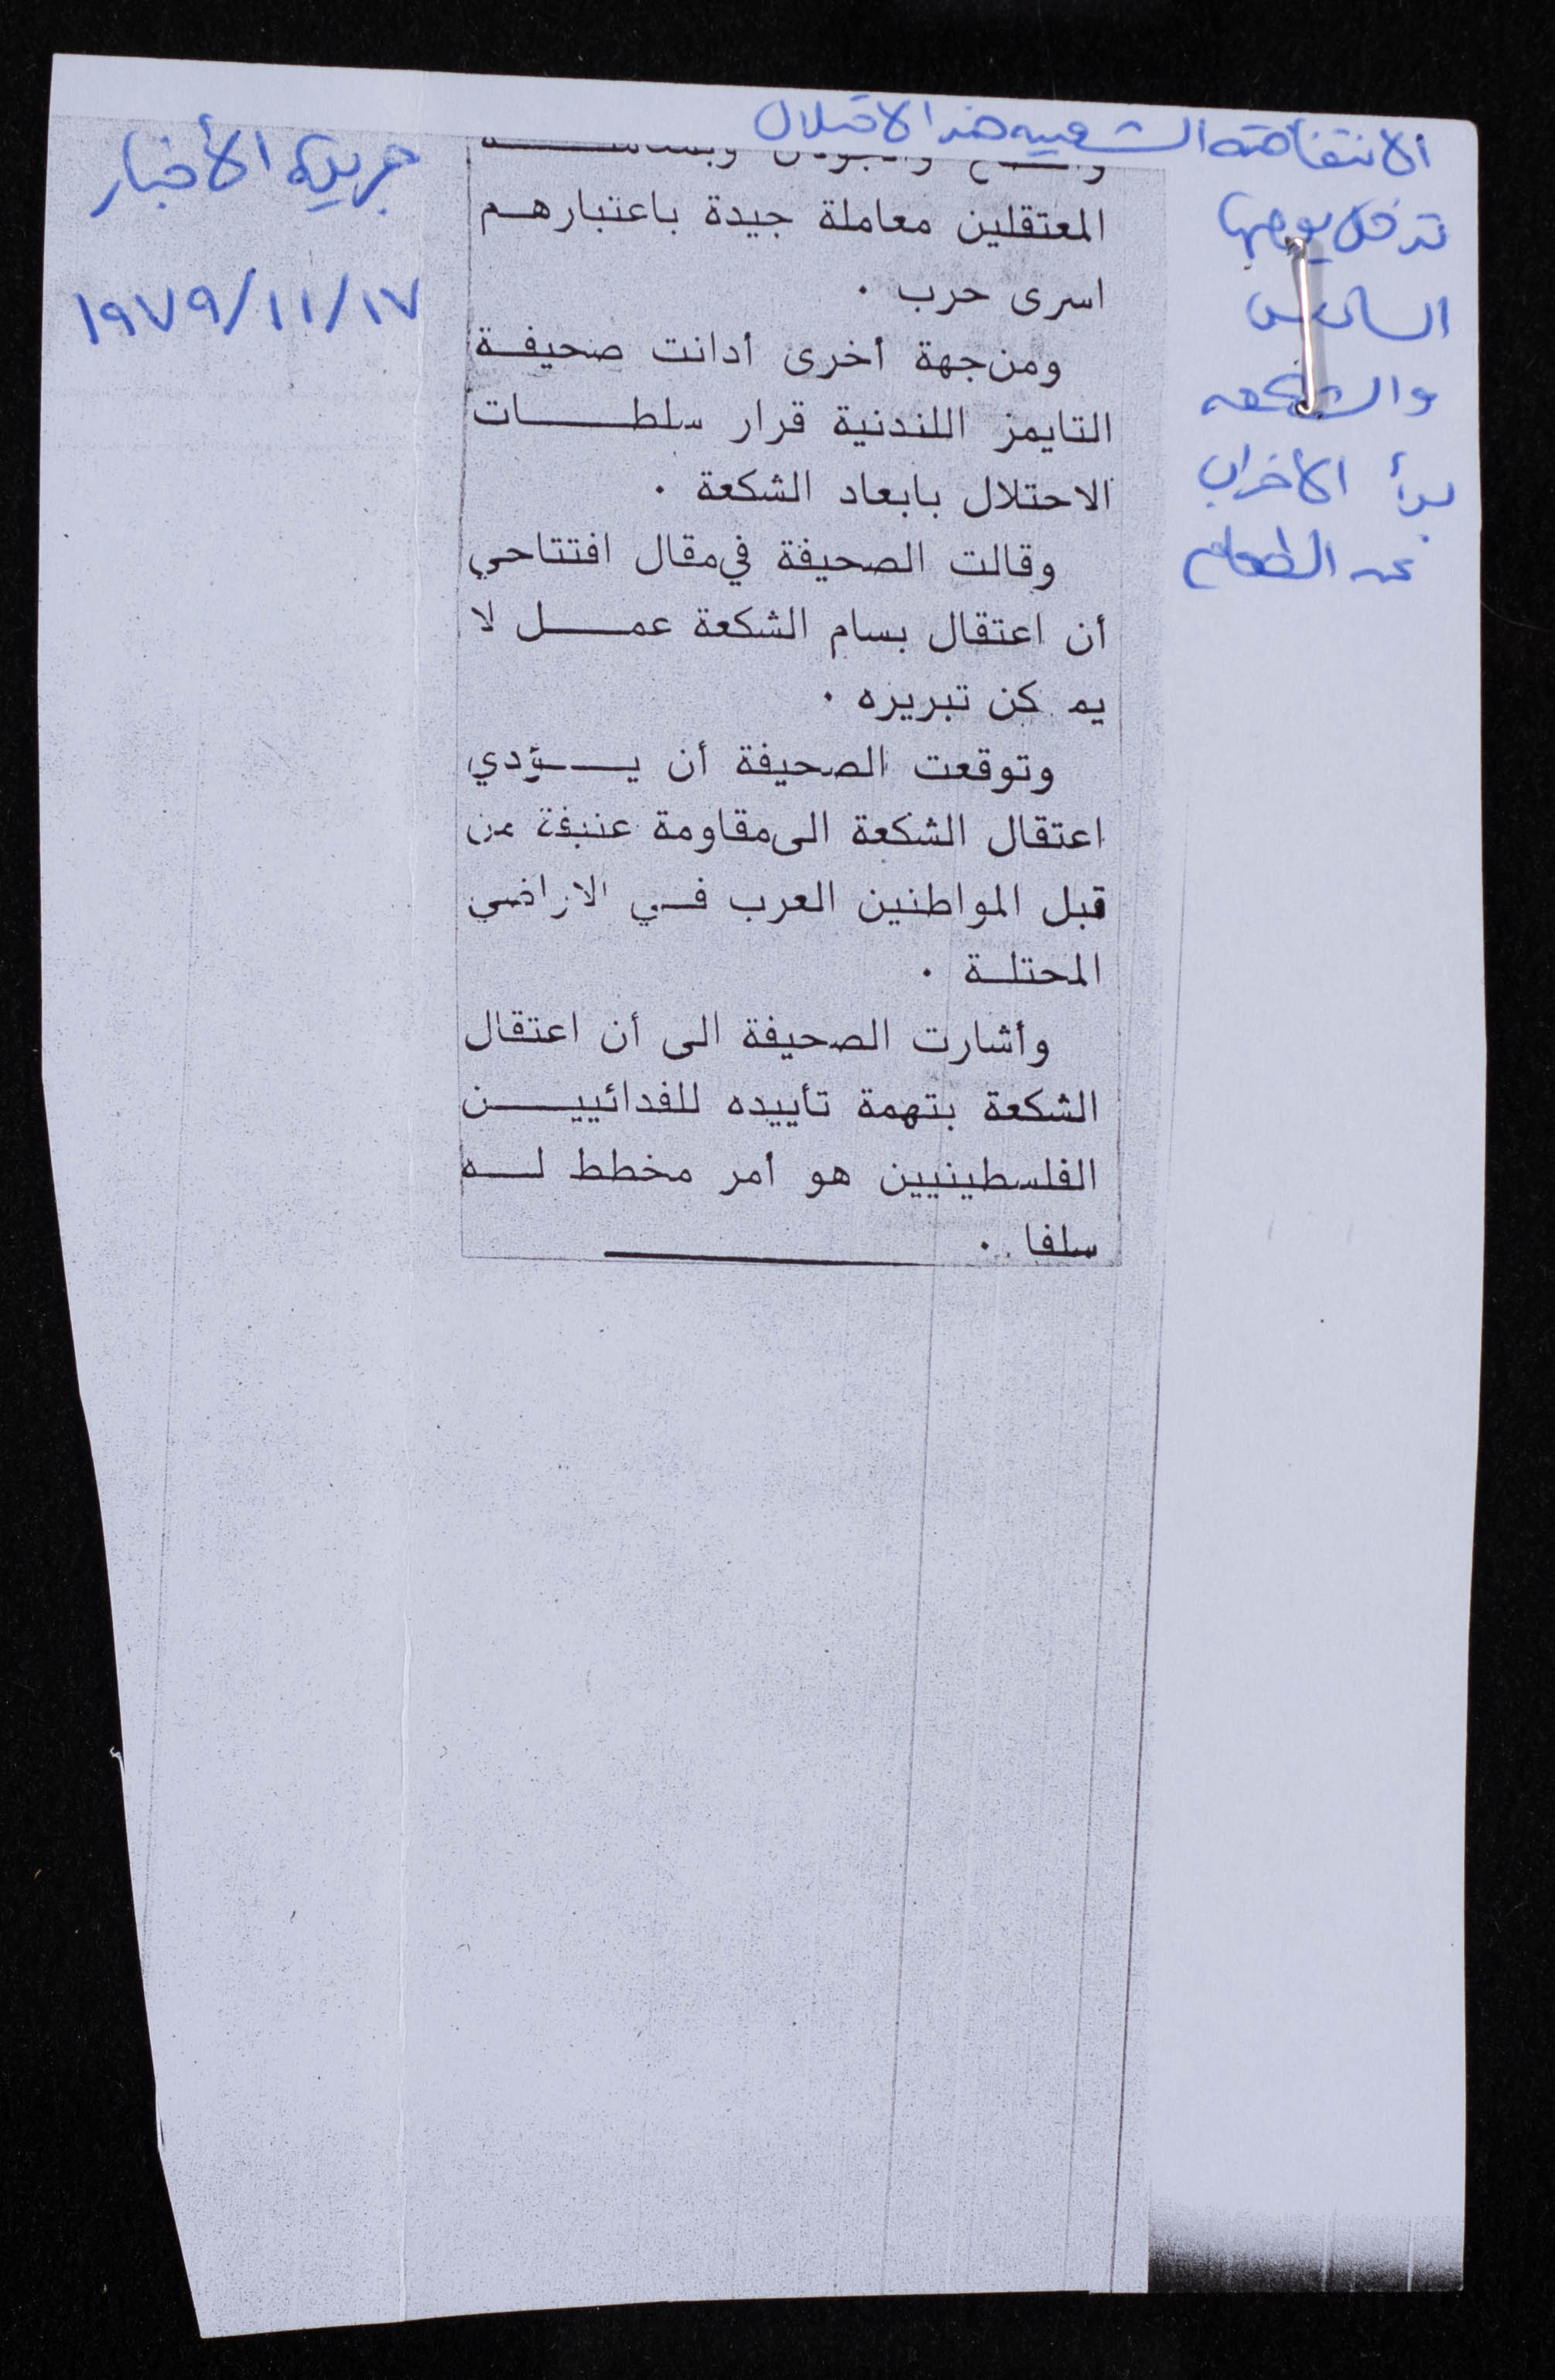 الانتفاضة الشعبيه ضد الاحتلال
تدخل يومها
السادس
والشكعه
بدأ الاضراب
عن الطعام
جريدة الأخبار
١٩٧٩/١١/١٧
المعتقلين معاملة جيدة باعتبارهم
اسرى حرب .
ومن جهة أخرى أدانت صحيفة
التايمز اللندنية قرار سلطات
الاحتلال بابعاد الشكعة .
وقالت الصحيفة في مقال افتتاحي
أن اعتقال بسام الشكعة عمل لا
يمكن تبريره .
وتوقعت الصحيفة أن يؤدي
اعتقال الشكعة الى مقاومة عنيفة من
قبل المواطنين العرب في الاراضي
المحتلة .
وأشارت الصحيفة الى أن اعتقال
الشكعة بتهمة تأييده للفدائيين
الفلسطينيين هو أمر مخطط له
سلفا .